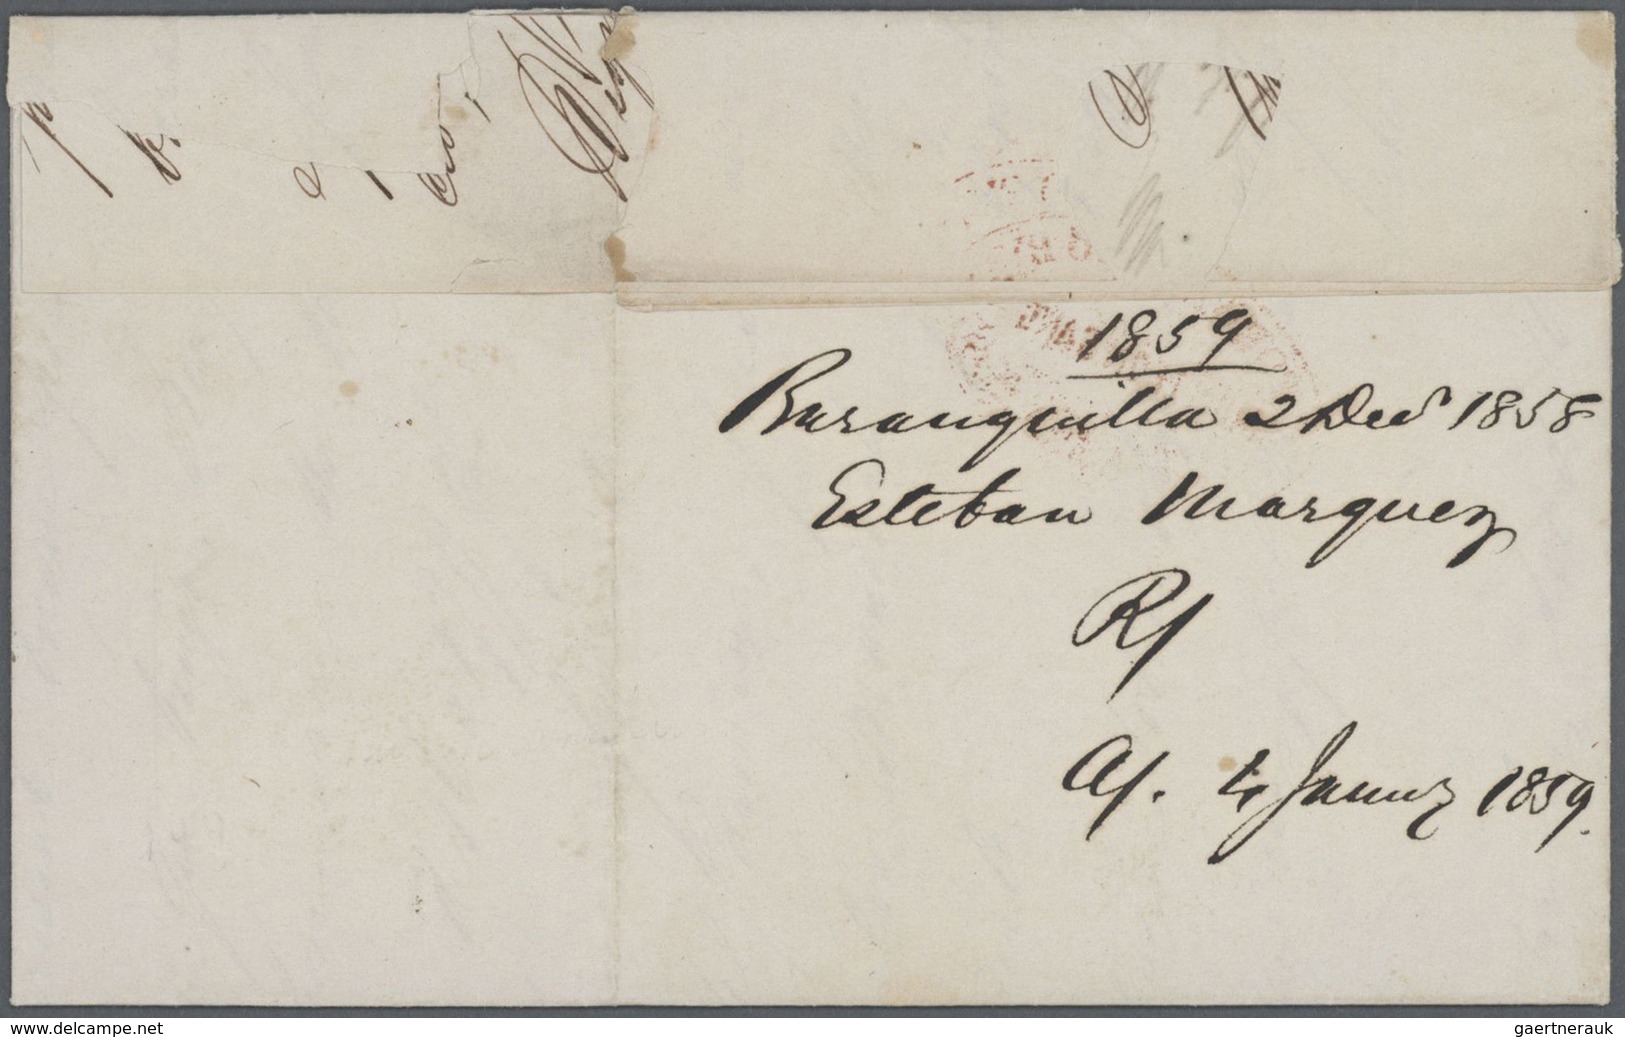 1859
Baranquilla 2 Decr 1858
Esteban Marquez
R/
A/. 4 Januy 1859.
www.delcampe.net
gaertnerauk